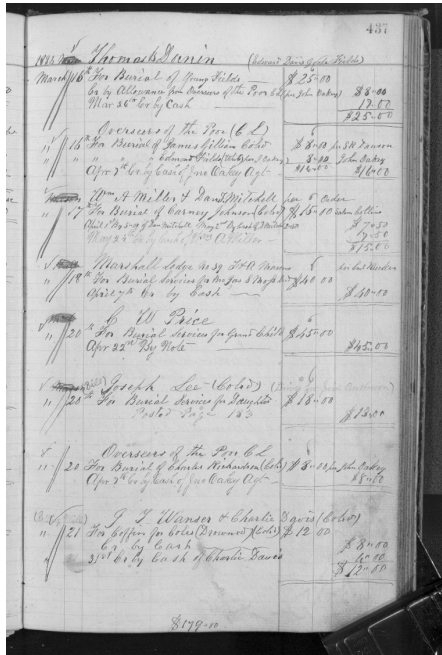 437
1885 Thomas Dunin (Edward Davis Joples Fields)
March 16th For Burial of Young Fields $25-00
Cr by Allowance from Overseers of the Poor CL per John Oakey $8-00
Mar 26th Cr by Cash 17-00
$25-00
Overseers of the Poor (C L)
" 16th For Burial of James Gilliam Cold $8-00 per SH
" " " " Edmund Fields 8-00 John Oakey
Apr 7th Cr by Cash of Jno Oakey Agt $16-00 $16-00
Wm A Miller & Davd Mitchell per Order
" 17 For Burial of Carney Johnson (Cold) $15-00
7-50
7-50
May 25 Cr by Cash of Wm A Miller $15-00
Marshall Lodge No 39 F & A Masons
" 18th For Burial Services for Mr Jas $40-00
April 7th Cr by Cash $40-00
C W Price
" 20th For Burial Services for Grand Child $45-00
Apr 22nd By Note $45-00
Joseph Lee (Cold)
" 20th For Burial Services for Daughter $18-00
Posted Page 183 $18-00
Overseers of the Poor C L
" 20 For Burial of Charles Richardson (Cold) $8-00 per John Oakey
Apr 7th Cr by Cash of Jno Oakey Agt $8-00
T J Wanser & Charlie Davis (Cold)
" 21 For Coffin for Coles (Drowned) (Cold) $12 00
Cr by Cash $8-00
31st Cr by Cash of Charlie Davis 4-00
$12-00
$179-00